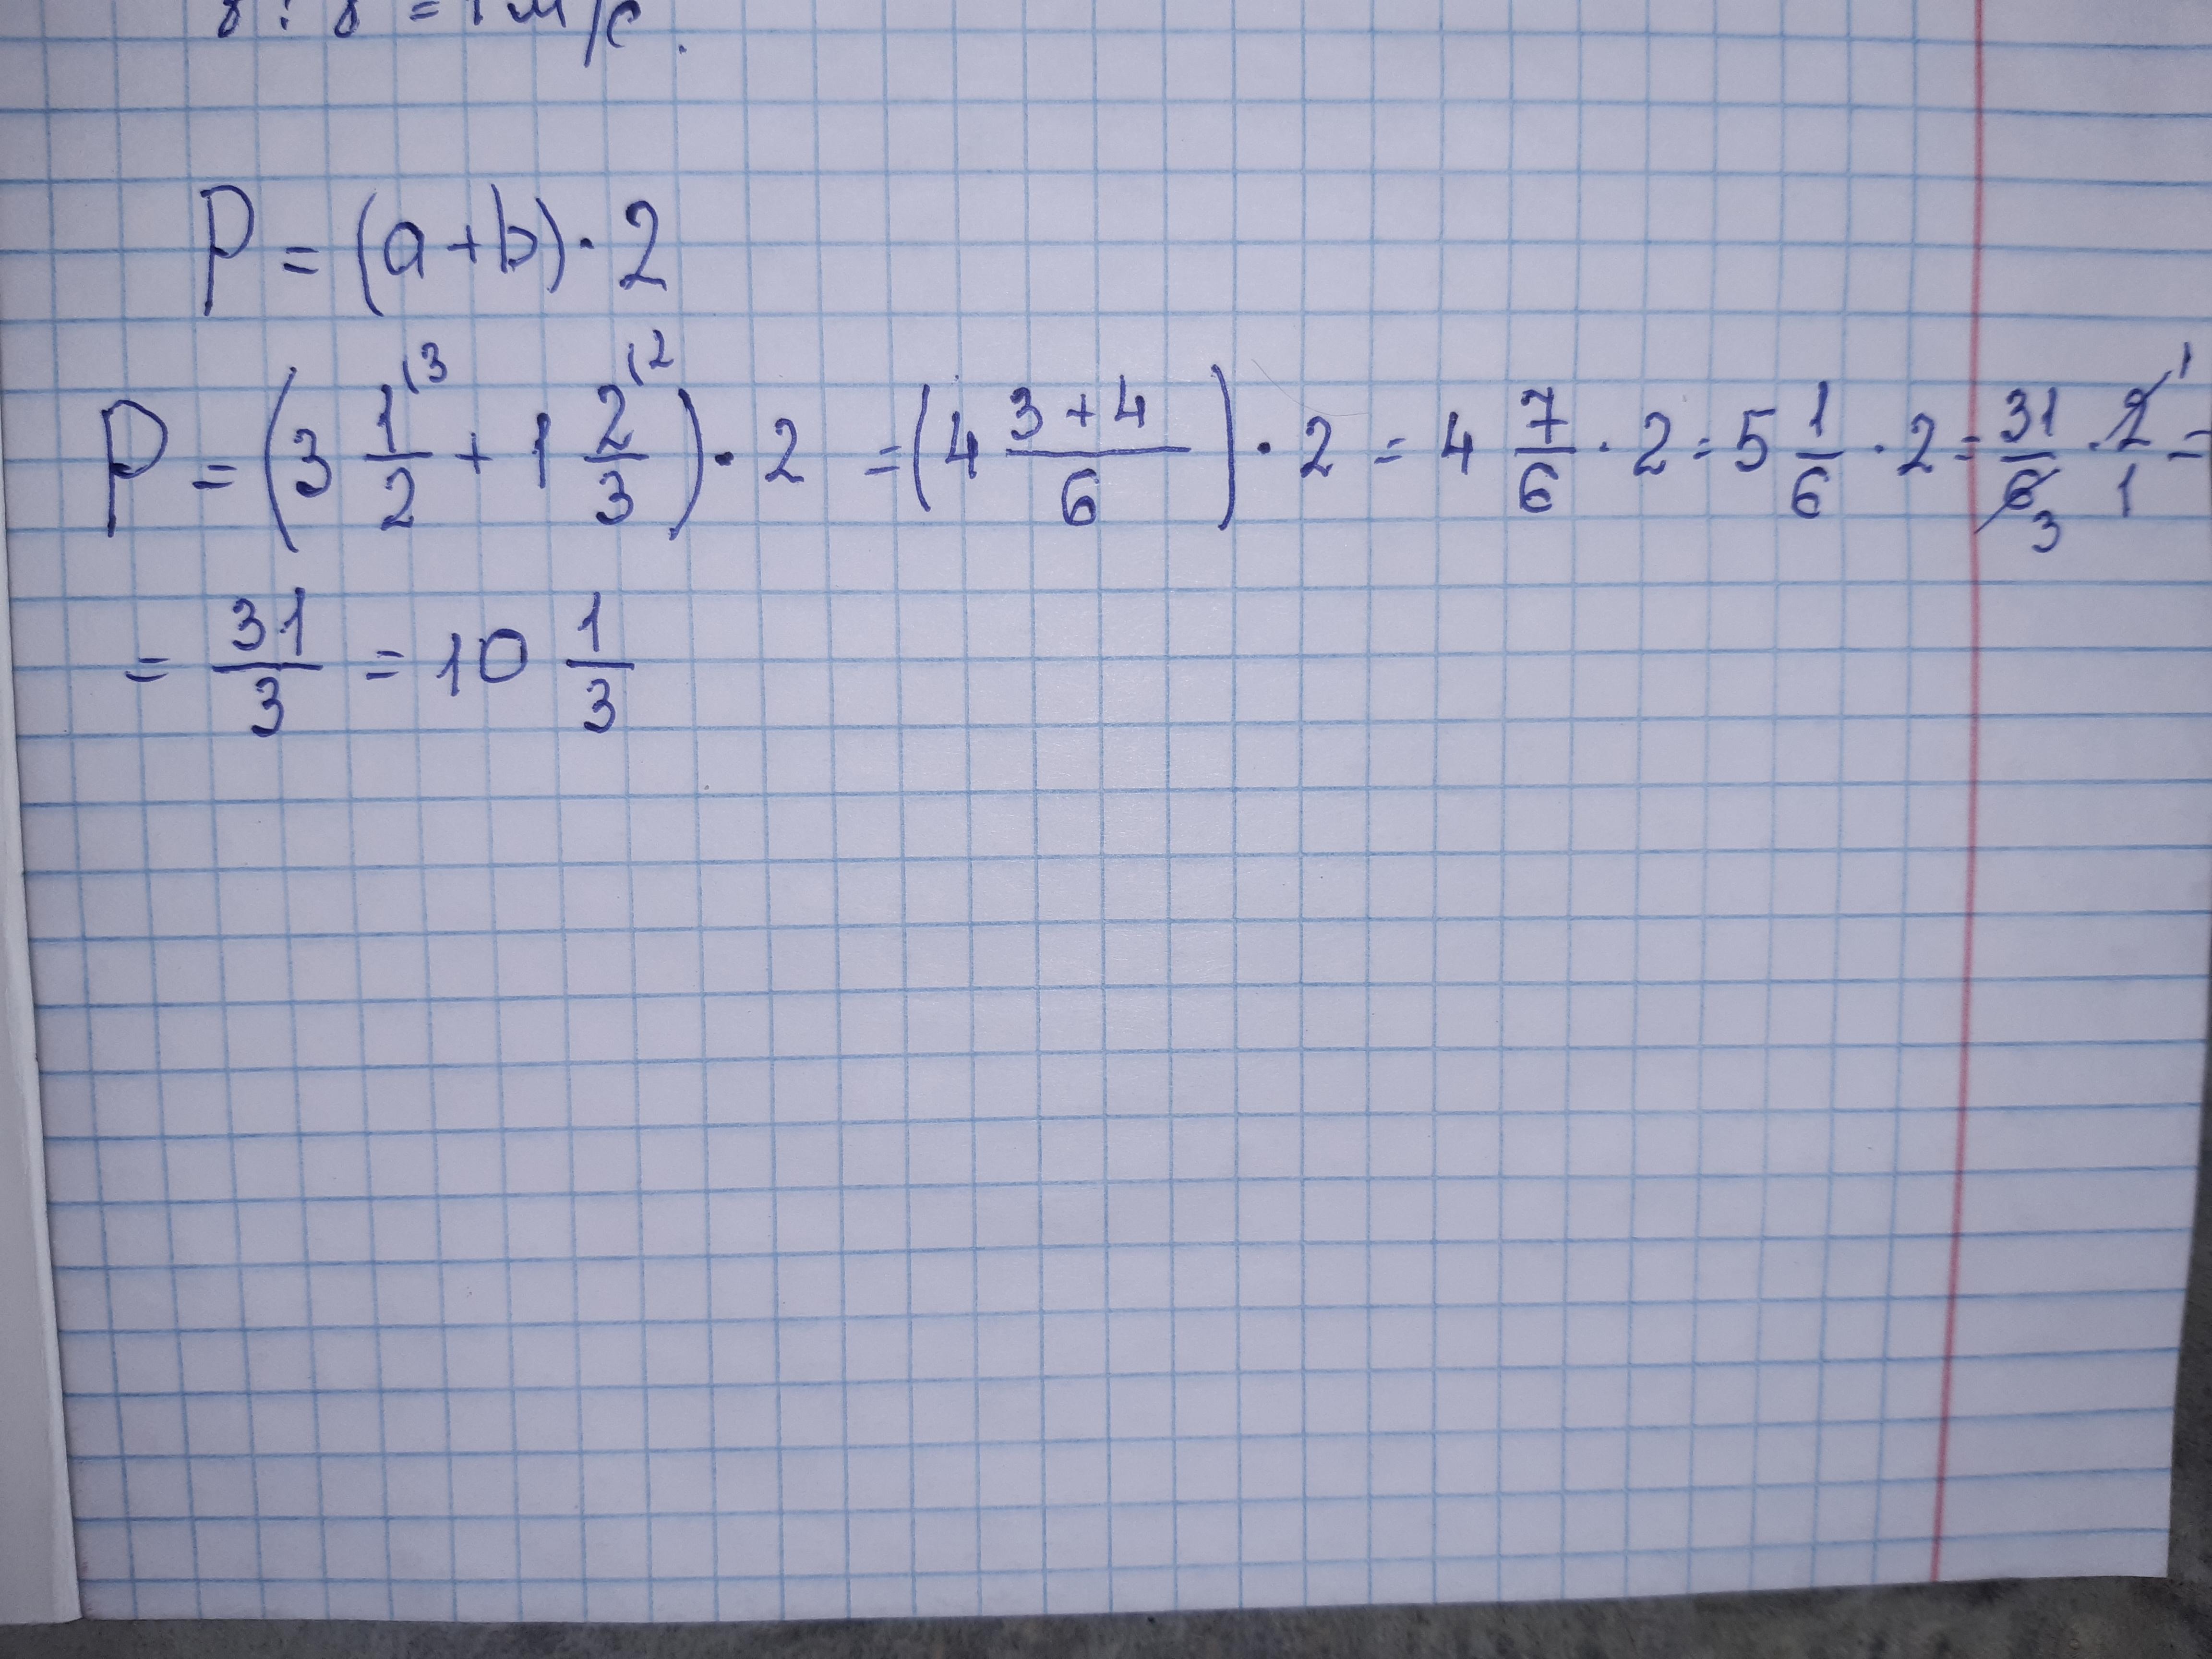 8 : 8 = 1 м/с.
P = (a + b) · 2
P = (3 1/2 ⁽³ + 1 2/3 ⁽²) · 2 = (4 (3 + 4)/6) · 2 = 4 7/6 · 2 = 5 1/6 · 2 = 31/6 3 · 2 1/1 =
= 31/3 = 10 1/3